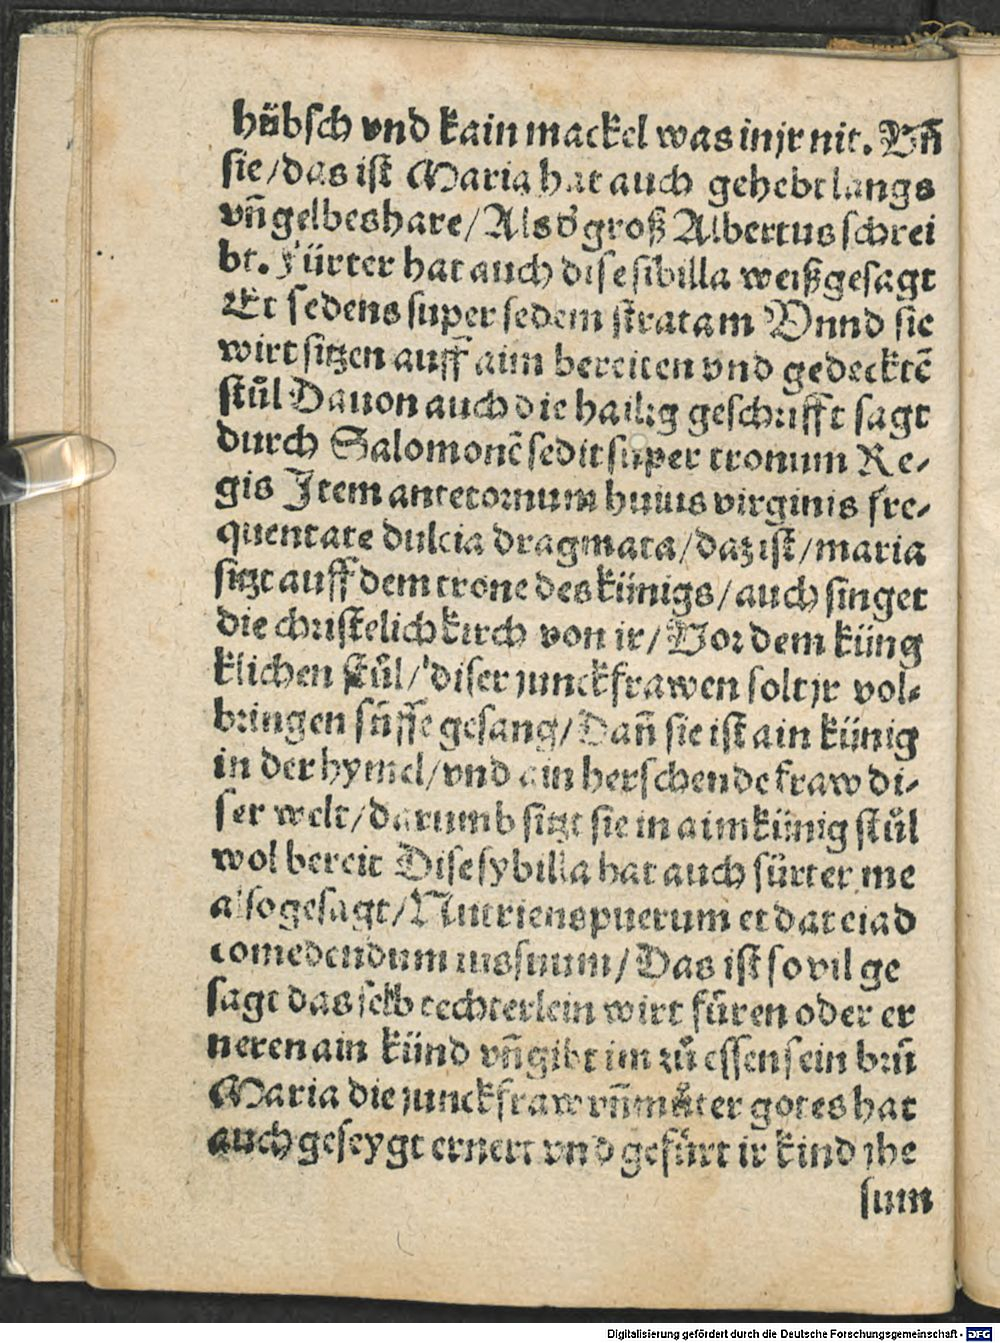 hübsch vnd kain mackel was in jr nit. Vn̄
sie/das ist Maria hat auch gehebt langs
vn̄ gelbes hare/Als d' groß Albertus schrei
bt. Fürter hat auch dise sibilla weißgesagt
Et sedens super sedem stratam Vnnd sie
wirt sitzen auff aim bereiten vnd gedecktē
stůl Dauon auch die hailig geschrifft sagt
durch Salomonē sedit super tronum Re-
gis Item ante tornum huius virginis fre-
quentate dulcia dragmata/daz ist/maria
sitzt auff dem trone des künigs/auch singet
die christelich kirch von ir/Vor dem küng
klichen stůl/diser junckfrawen solt jr vol-
bringen süsse gesang/Dan̄ sie ist ain künig
in der hymel/vnd ain herschende fraw di-
ser welt/darumb sitzt sie in aim künig stůl
wol bereit Dise sybilla hat auch fürter me
also gesagt/Nutriens puerum et dat ei ad
comedendum ius suum/Das ist so vil ge
sagt das selb techterlein wirt fůren oder er
neren ain künd vn̄ gibt im zů essen sein brü
Maria die junckfraw vn̄ můter gotes hat
auch geseygt ernert vnd gefůrt ir kind jhe
sum
Digitalisierung gefördert durch die Deutsche Forschungsgemeinschaft - DFG